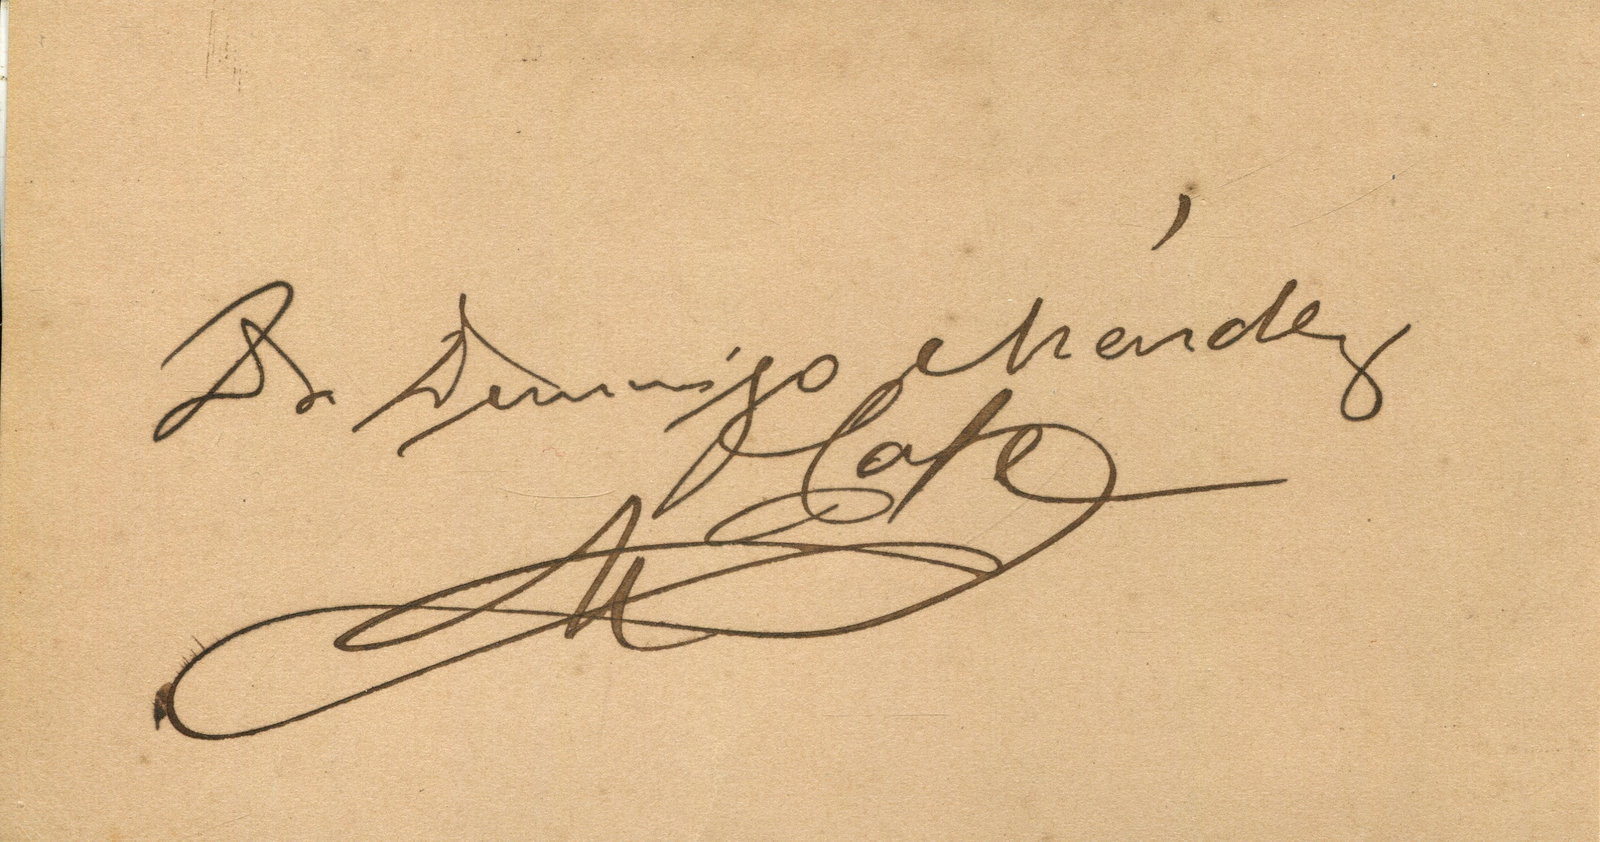 Dr Domingo Méndez
Capote